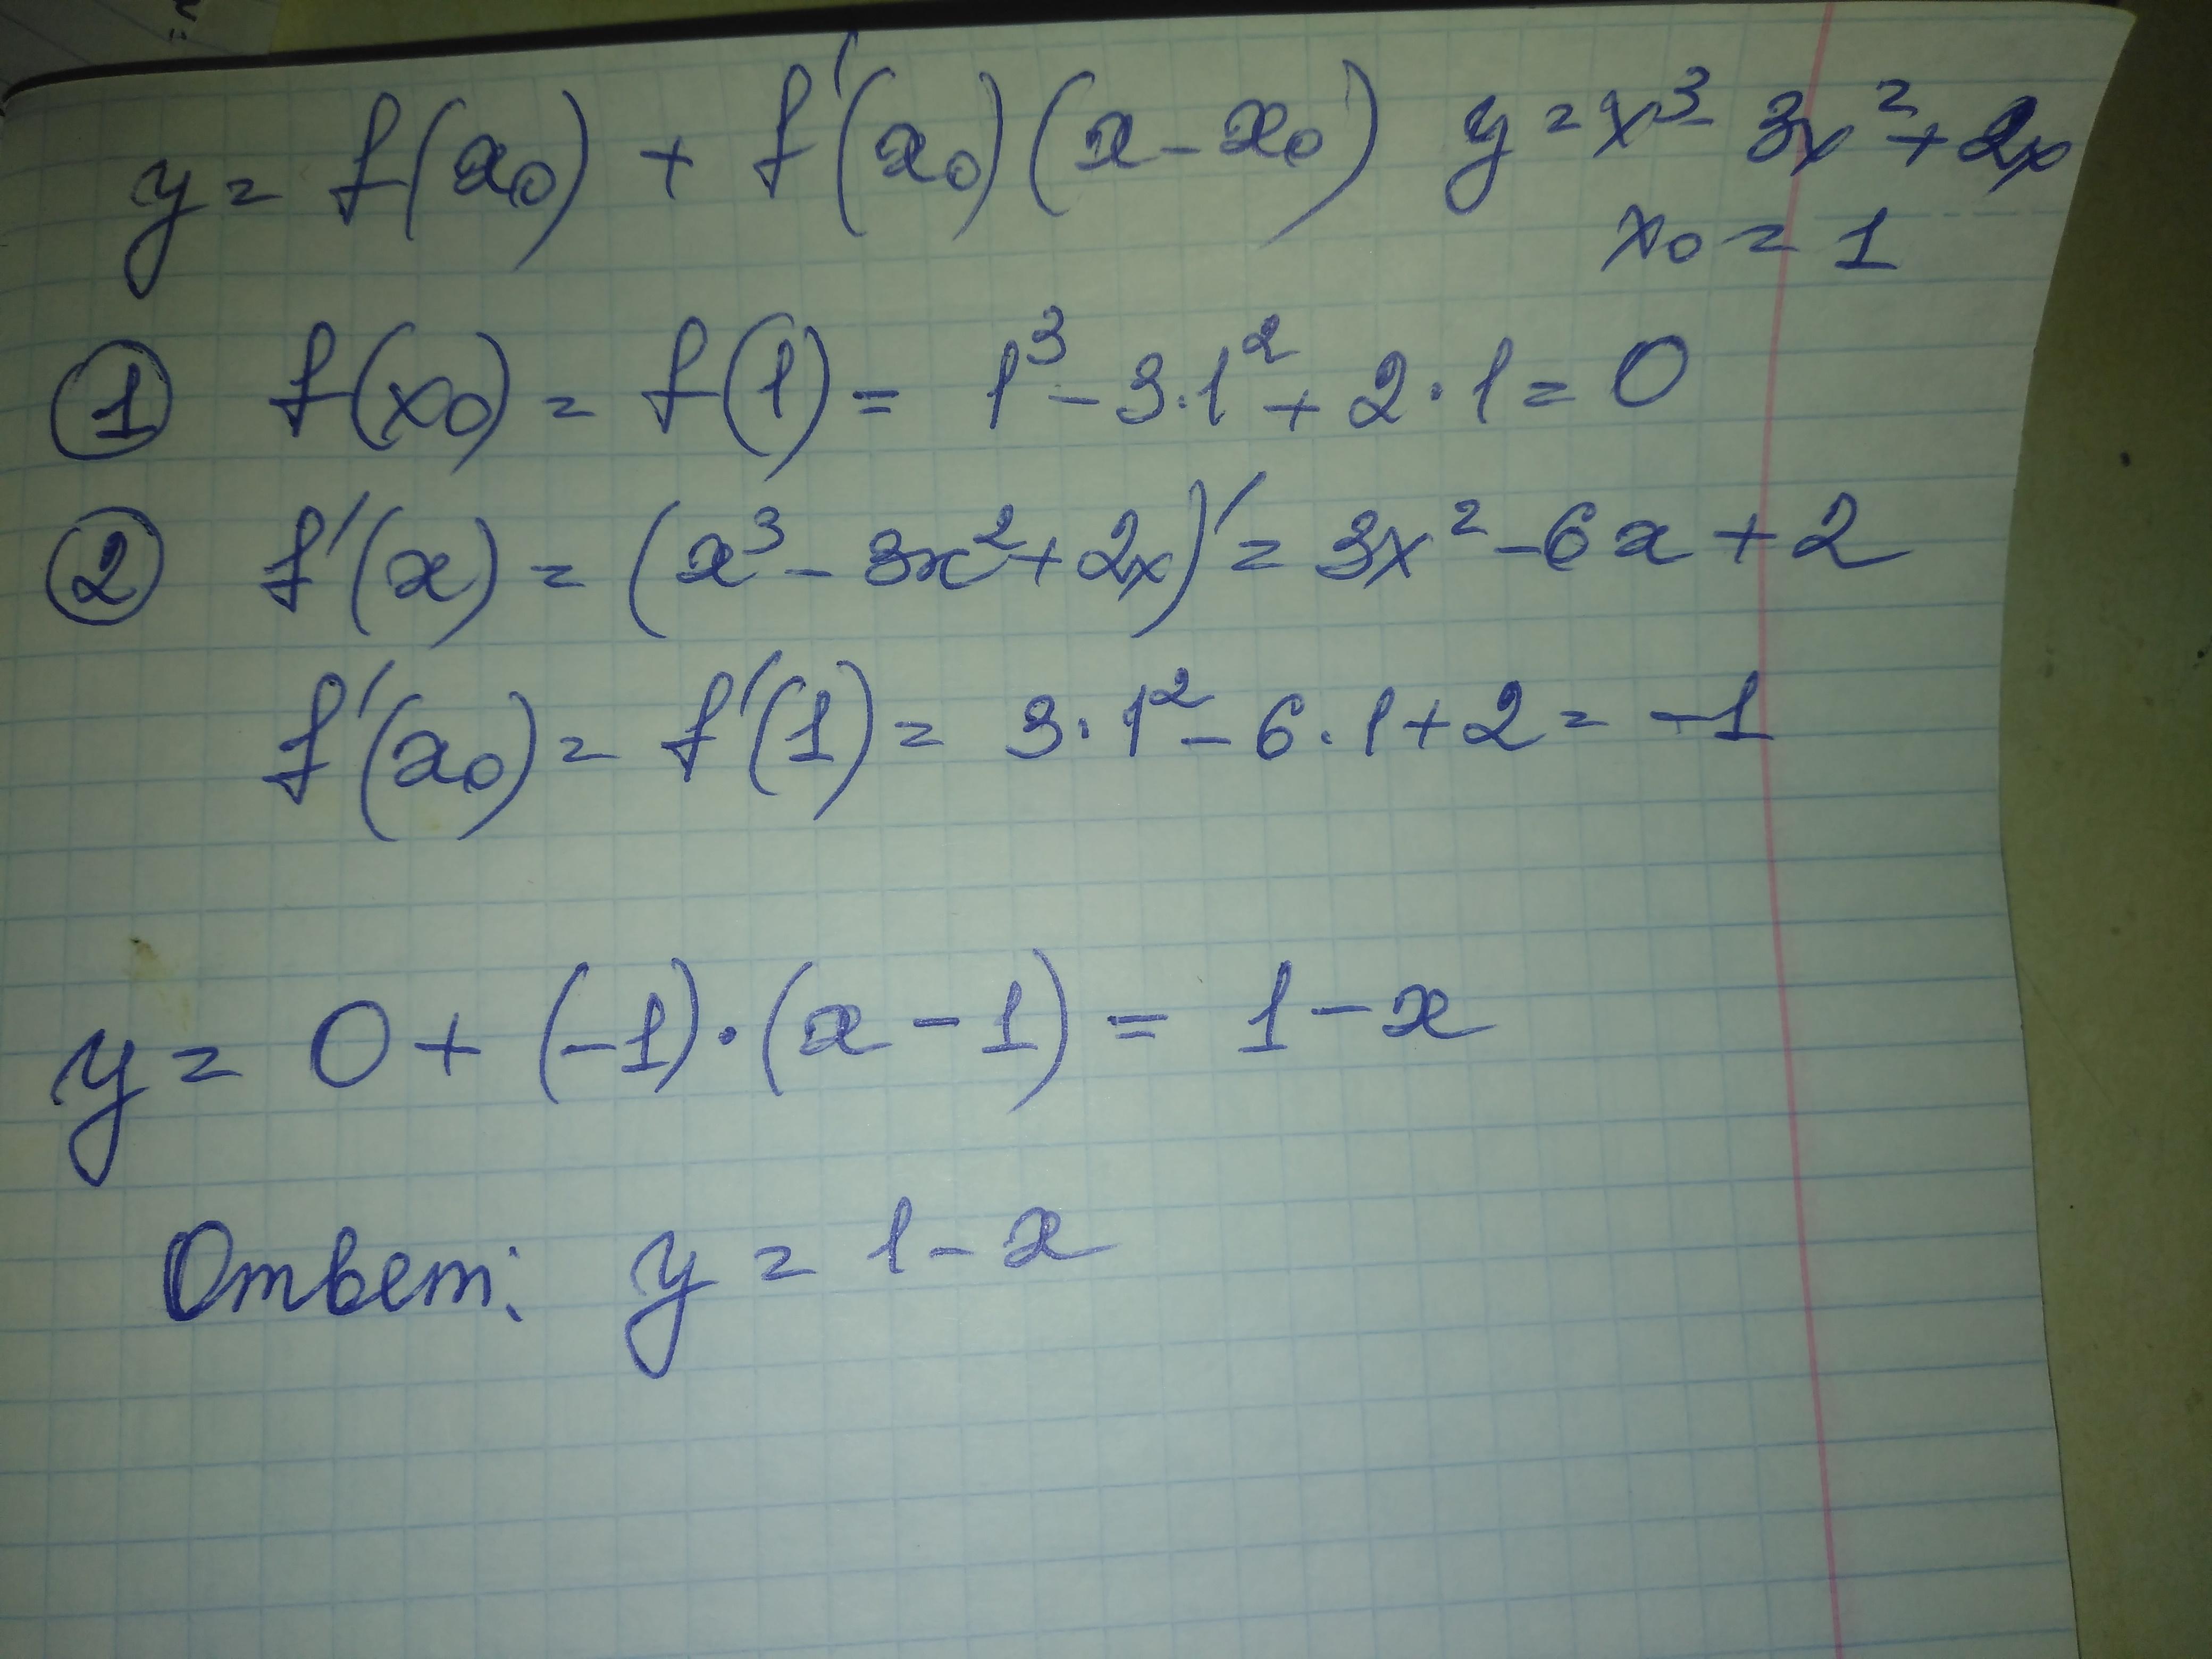 y = f(x₀) + f'(x₀)(x - x₀) y = x³ - 3x² + 2x
x₀ = 1
① f(x₀) = f(1) = 1³ - 3·1² + 2·1 = 0
② f'(x) = (x³ - 3x² + 2x)' = 3x² - 6x + 2
f'(x₀) = f'(1) = 3·1² - 6·1 + 2 = -1
y = 0 + (-1)·(x - 1) = 1 - x
Ответ: y = 1 - x